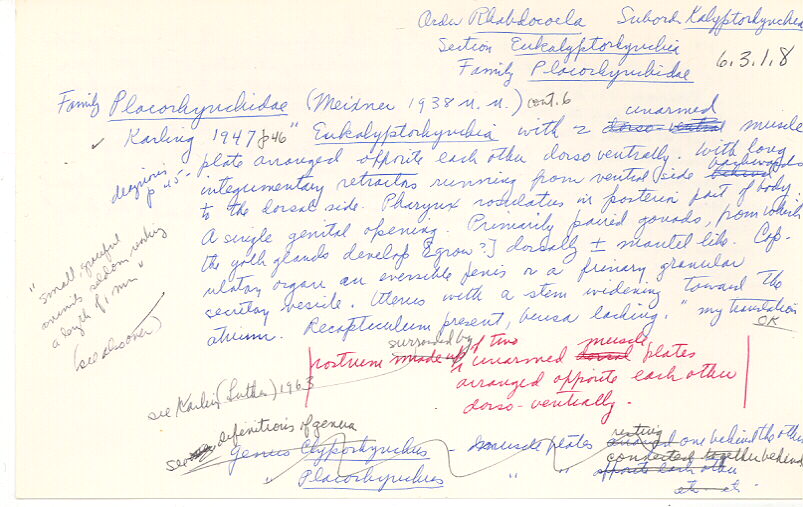 Order Rhabdocoela Subord Kalyptorhynchia
Section Eukalyptorhynchia
Family Placorhynchidae
6.3.1.8
Family Placorhynchidae (Meixner 1938 n. n.) cont. 6
unarmed
✓ Karling 1947 p46 "Eukalyptorhynchia with 2 dorso-ventral muscle
diagnosis p 45
plate arranged opposite each other dorso ventrally. With long
integumentary retractors running from ventral side behind backwards
to the dorsal side. Pharynx rosulatus in posterior part of body
A single genital opening. Primarily paired gonads, from which
the yolk glands develop [grow?] dorsally ± mantel like. Cop-
ulatory organ an eversible penis or a granular
secretory vesicle. Uterus with a stem widening toward the
atrium. Receptaculum present, bursa lacking." my translation
OK
"small, graceful
animals seldom reaching
a length of 1 mm"
(see also over)
surrounded by
rostrum made up of two muscle
unarmed dorsal plates
arranged opposite each other
dorso-ventrally.
see Karling (Luther) 1963
see definitions of genera
resting
Genus Clyporhynchus - muscle plates arranged one behind the other
connected together behind
Placorhynchus " " opposite each other